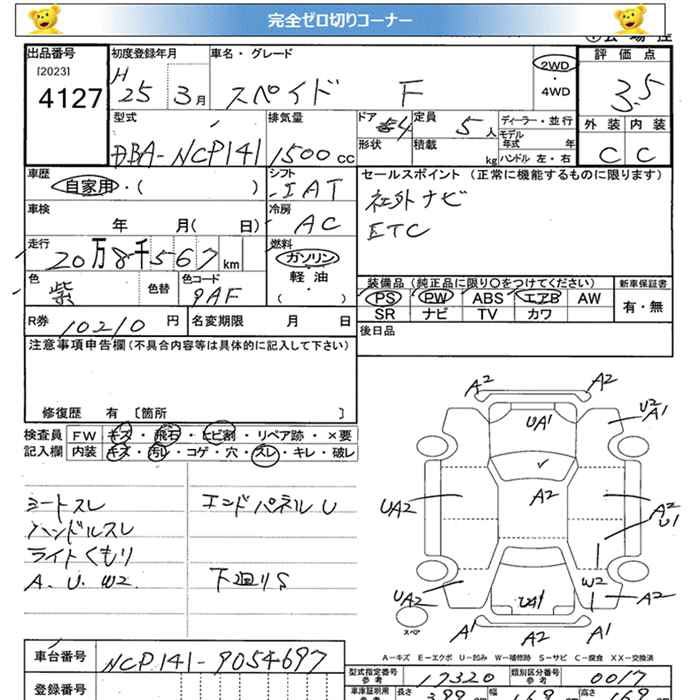 完全ゼロ切りコーナー
出品番号 初度登録年月 車名・グレード 評価点
[2023] H
4127 25 3月 スペイド F 2WD・4WD 3.5
型式 排気量 ドア 54 定員 5人 ディーラー・並行 外装 内装
DBA-NCP141 1500cc 形状 積載 kg モデル年式 年 ハンドル 左・右 C C
車歴 シフト セールスポイント (正常に機能するものに限ります)
自家用・( ) IAT 社外ナビ
車検 冷房 ETC
年 月( 日) AC
走行 燃料
20万8千567km ガソリン
色 色替 色コード 軽・油 装備品 (純正品に限り〇をつけてください) 新車保証書
紫 9AF ( ) PS PW ABS エアB AW 有・無
SR ナビ TV カワ
R券 10210円 名変期限 月 日 後日品
注意事項申告欄 (不具合内容等は具体的に記入して下さい)
修復歴 有 〔箇所 〕
検査員 FW キズ・飛石・ヒビ割・リペア跡・×要
記入欄 内装 キズ・汚レ・コゲ・穴・スレ・キレ・破レ
シートスレ エンドパネルU
ハンドルスレ
ライトくもり
A. U. W2 下廻りS
A2 A2
UA1 U2 A1
UA2 A2 A2 U1
W2
UA2 UA1 A2
スペア A1 A2 A1
A-キズ E-エクボ U-凹み W-補修跡 S-サビ C-腐食 XX-交換済
車台番号 NCP141-9054697 型式指定番号 参考 17320 類別区分番号 参考 0017
登録番号 車庫証明用 長さ 399 幅 169 高さ 159